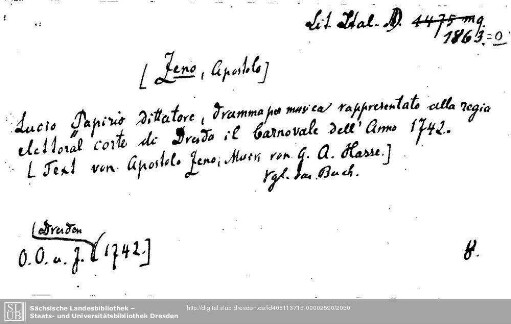 Lit. Ital. D. 4475 mq
1863 = 0
[Zeno, Apostolo]
Lucio Papirio dittatore, dramma per musica rappresentato alla regia
elettoral corte di Dresda il Carnovale dell'Anno 1742.
[Text von Apostolo Zeno, Musik von G. A. Hasse.]
Vgl. das Buch.
[Dresden
O. O. u. J. (1742.]
8.
SLUB
Sächsische Landesbibliothek –
Staats- und Universitätsbibliothek Dresden